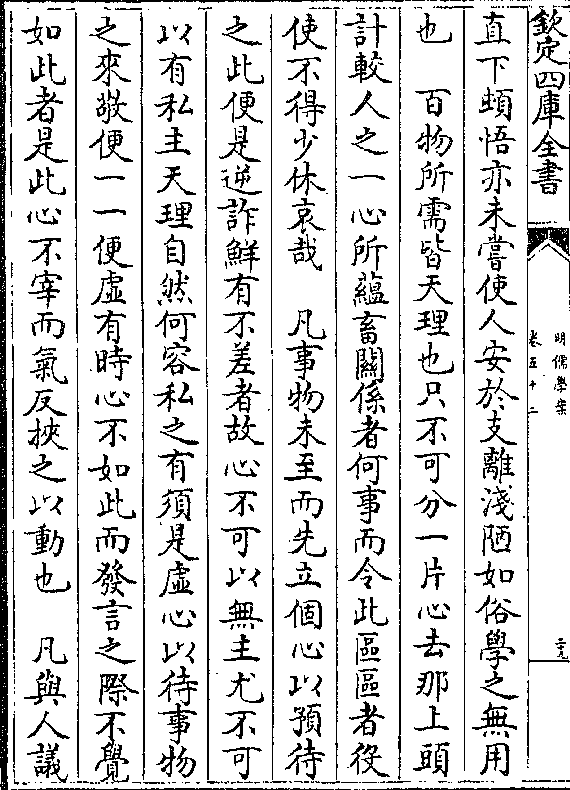 欽定四庫全書
明儒學案
卷五十二
二九
直下頓悟亦未嘗使人安於支離淺陋如俗學之無用
也　百物所需皆天理也只不可分一片心去那上頭
計較人之一心所蘊畜關係者何事而令此區區者役
使不得少休哀哉　凡事物未至而先立個心以預待
之此便是逆詐鮮有不差者故心不可以無主尤不可
以有私主天理自然何容私之有須是虛心以待事物
之來敬便一一便虛有時心不如此而發言之際不覺
如此者是此心不宰而氣反挾之以動也　凡與人議